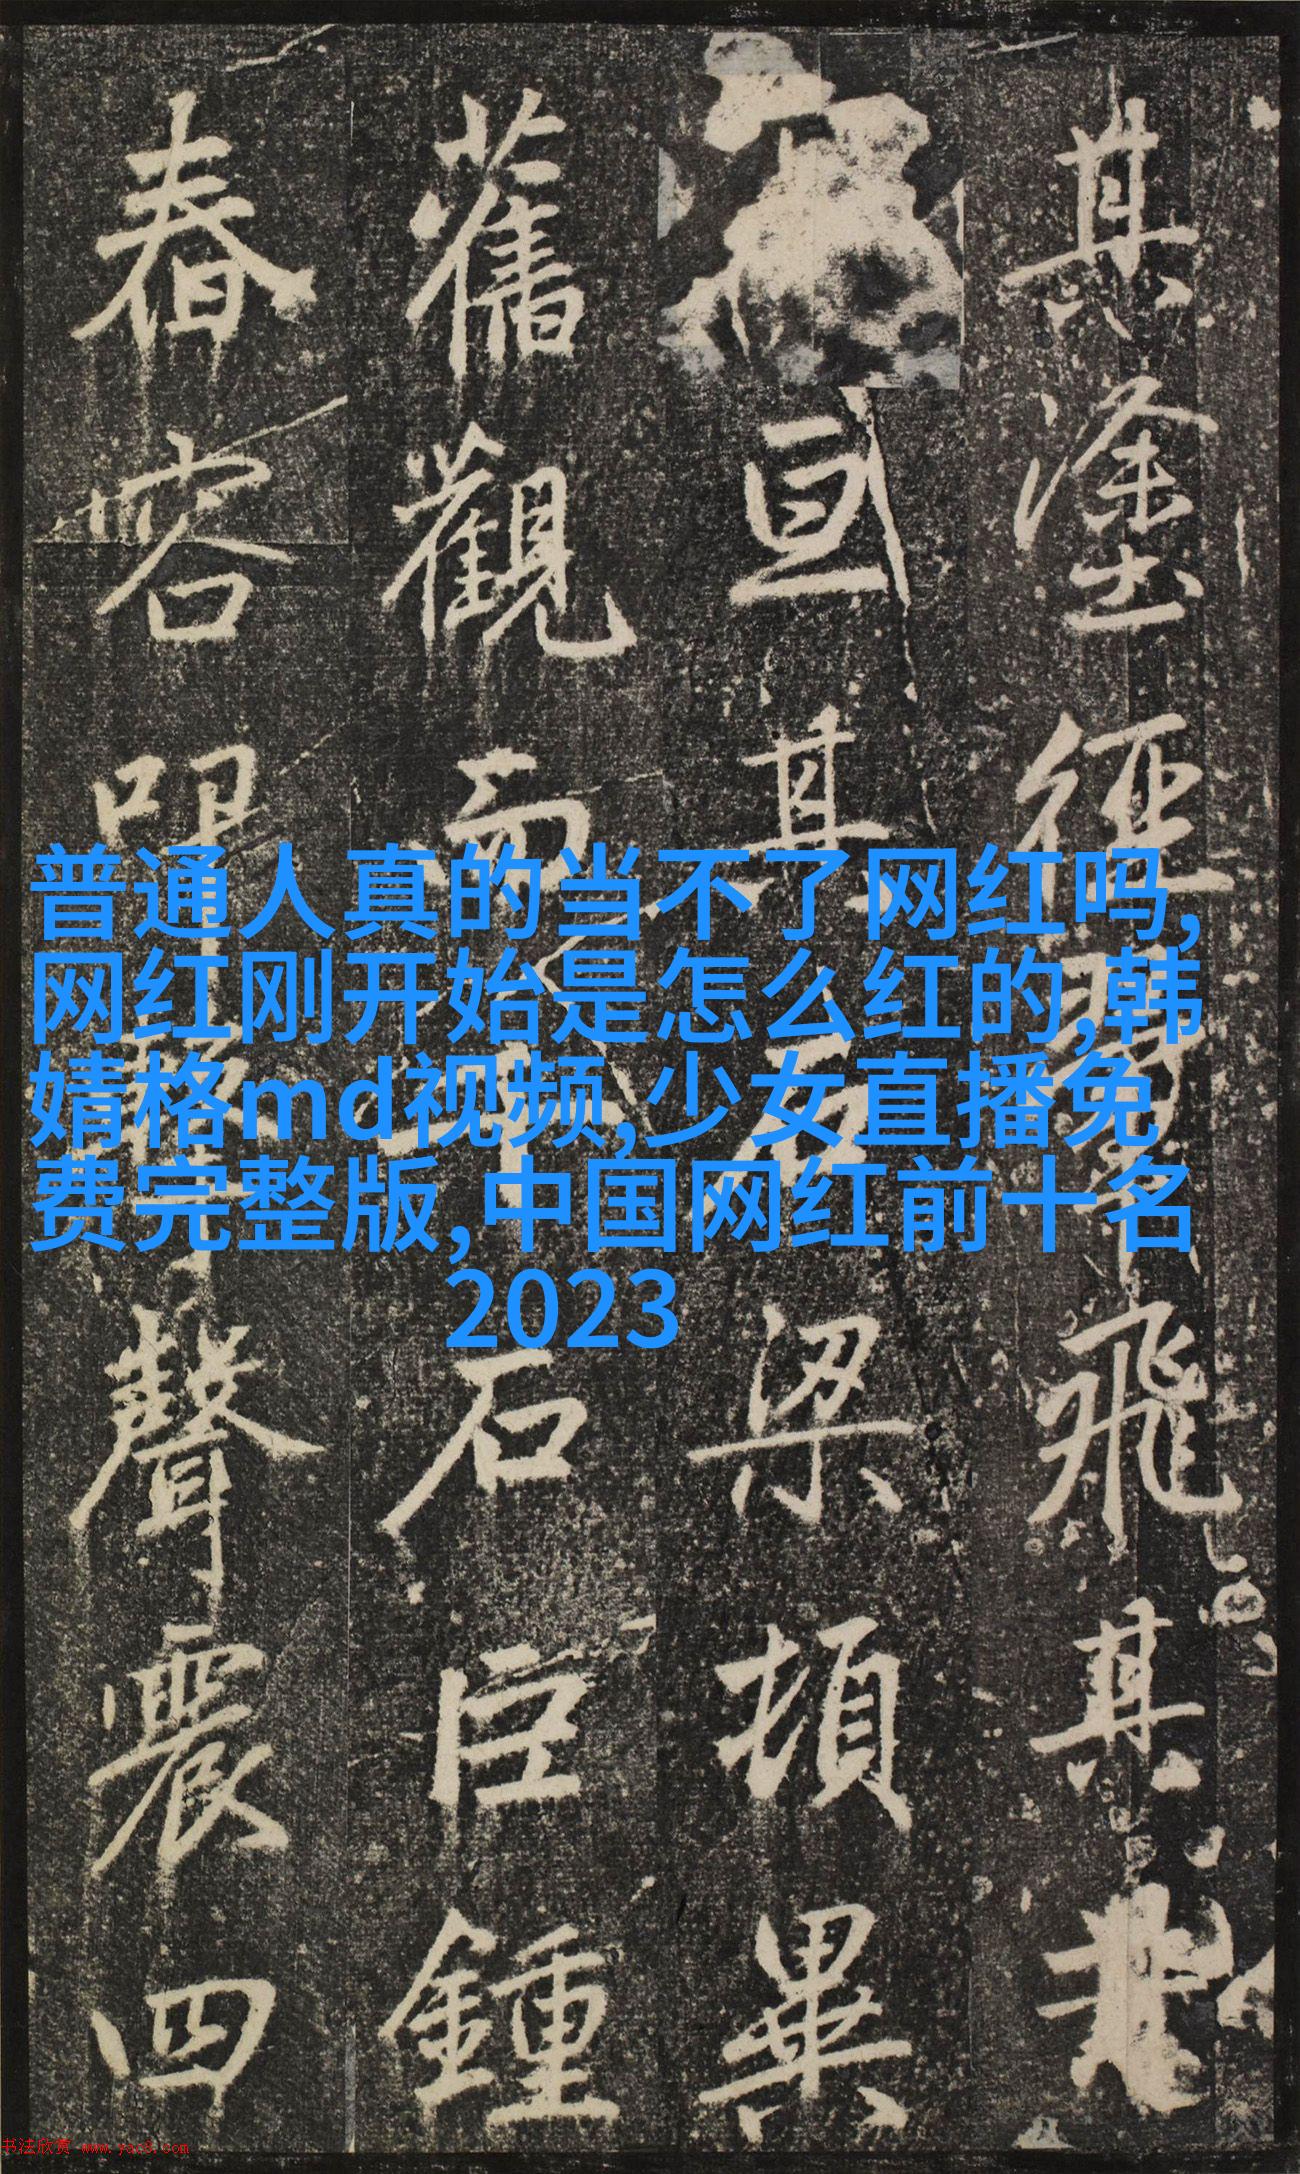 其塗徑飛其
亘其梁頓畢
舊觀而石巨鍾
春容聲震四
普通人真的当不了网红吗,
网红刚开始是怎么红的,韩
婧格md视频,少女直播免
费完整版,中国网红前十名
2023
书法欣赏 www.yac8.com